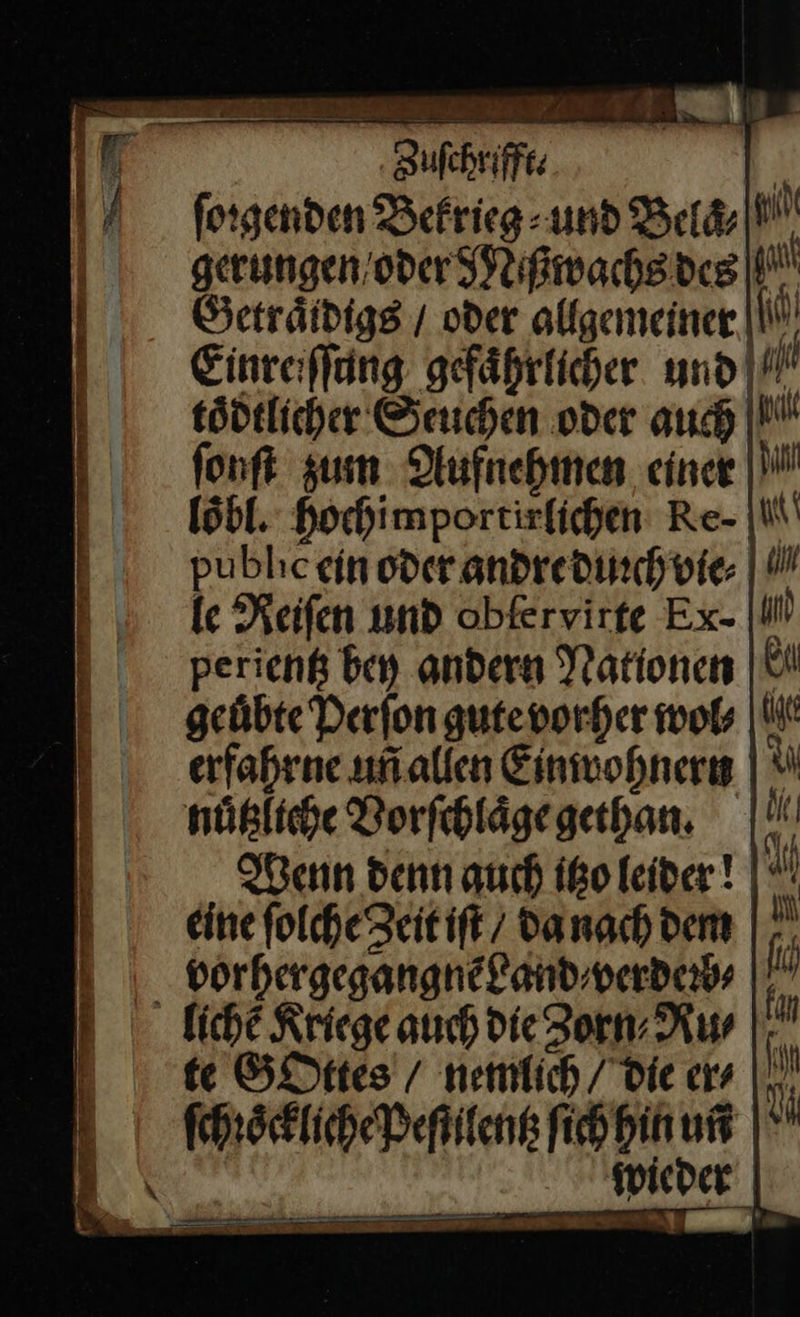 Zuſchrifft.
ſorgenden Bekrieg- und Belaͤ-
gerungen/oder Mißwachs des
Getraͤidigs / oder allgemeiner
Einreiſſung gefaͤhrlicher und
toͤdtlicher Seuchen oder auch
ſonſt zum Aufnehmen einer
loͤbl. hochimportirlichen Re-
public ein oder andre durch vie-
le Reiſen und obſervirte Ex-
perientz bey andern Nationen
geuͤbte Perſon gute vorher wol-
erfahrne uñ allen Einwohnern
nuͤtzliche Vorſchlaͤge gethan.
Wenn denn auch itzo leider!
eine ſolche Zeit iſt / da nach dem
vorhergegangnẽ Land-verderb-
lichẽ Kriege auch die Zorn-Ru-
te GOttes / nemlich / die er-
ſchroͤckliche Peſtilentz ſich hin uñ
wieder